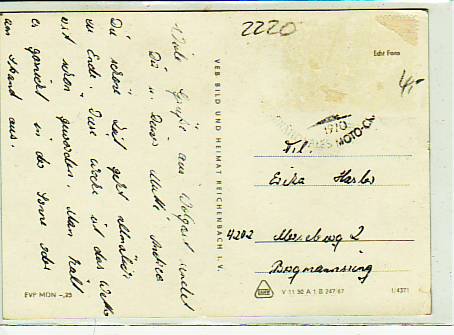 2220
Echt Foto
4,-
1970
MOTO-C
Viele Grüße aus Wolgast sendet
Du u. Deine Mutti
Die schöne Zeit geht allmählich
zu Ende. Diese Woche ist das Wetter
erst schön geworden. Man hält
es garnicht in der Sonne oder
am Strand aus.
VEB BILD UND HEIMAT REICHENBACH I. V.
Erika
4202 Merseburg 2
Bergmannsring
EVP MDN -,25
V 11 50 A 1 B 247/67
1/4371